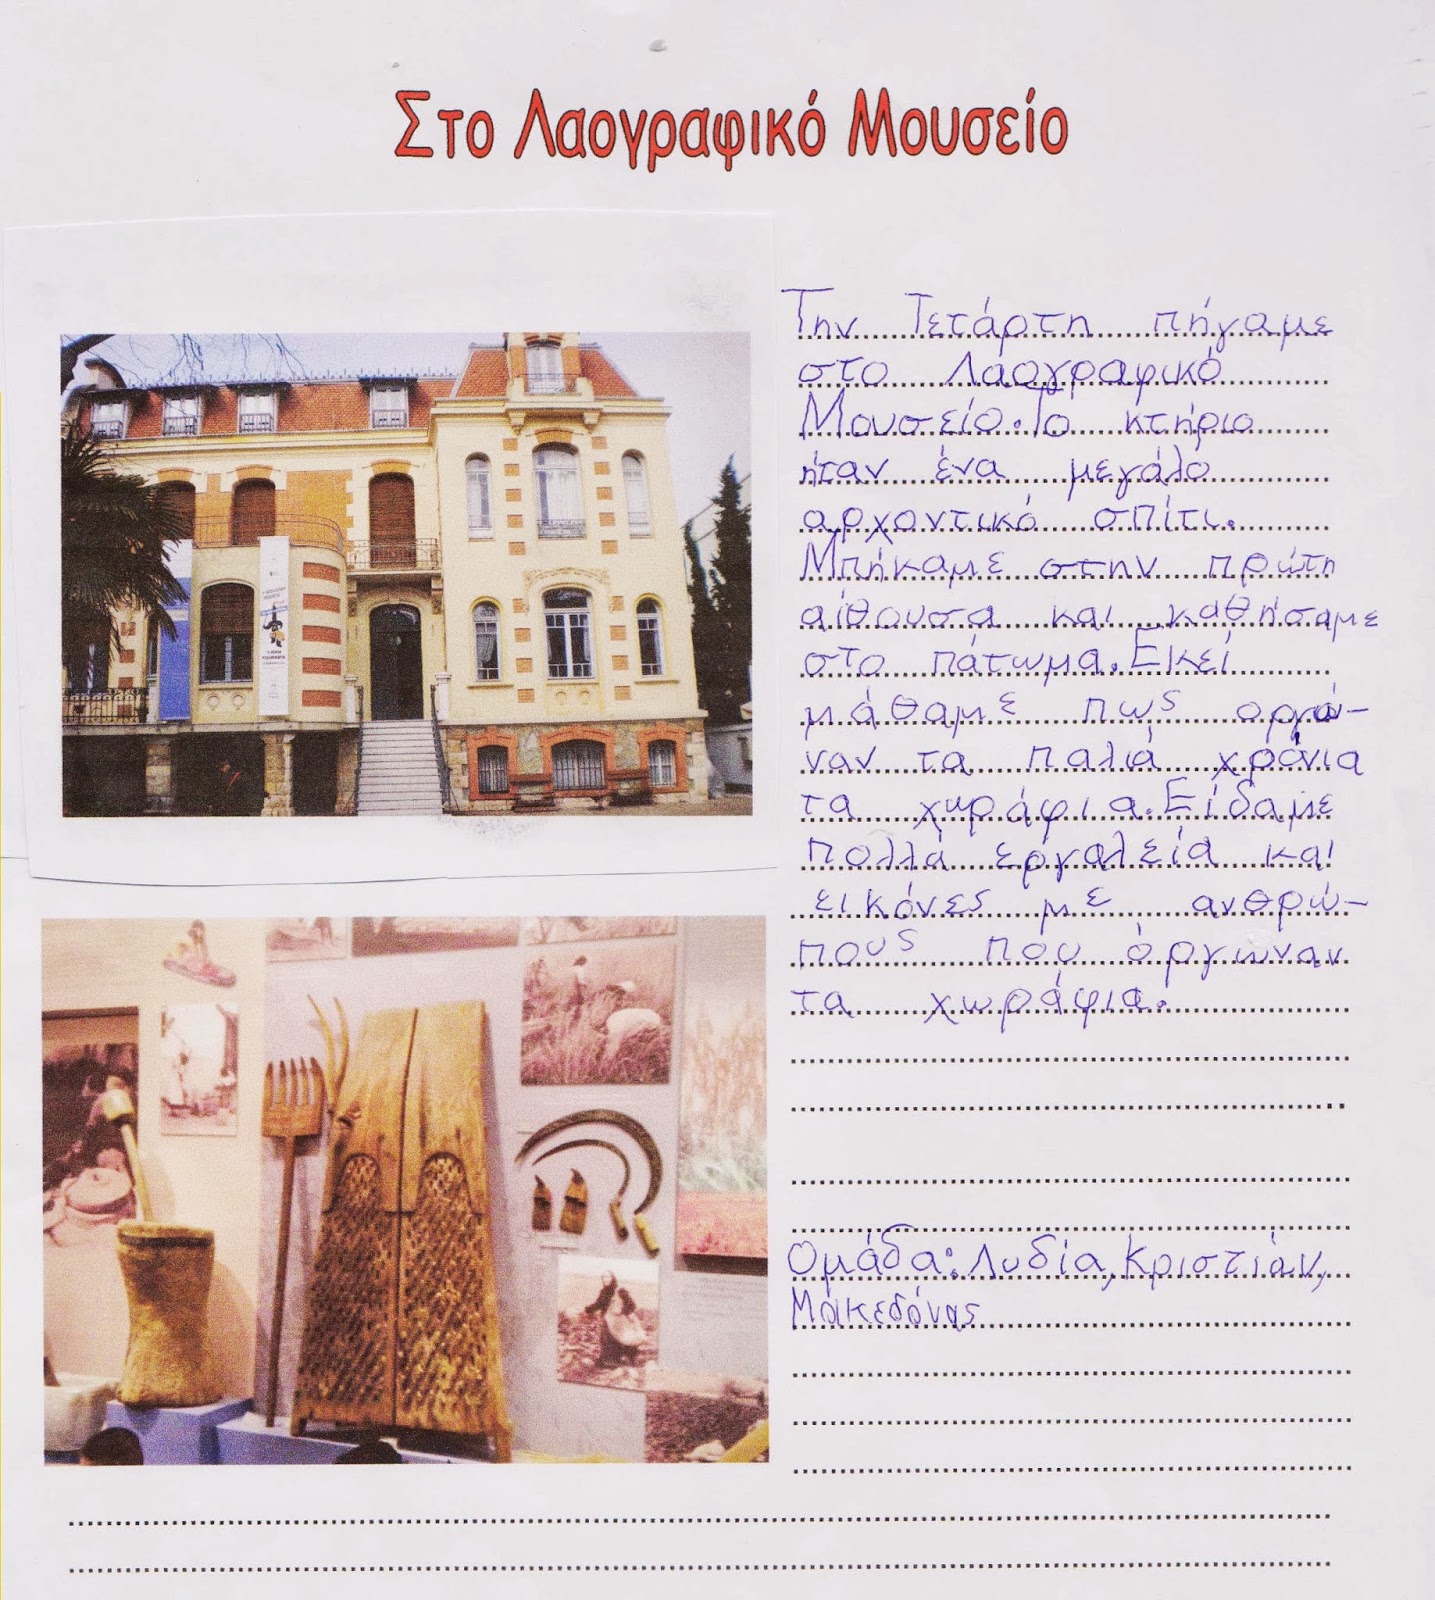 Στο Λαογραφικό Μουσείο
Την Τετάρτη πήγαμε
στο Λαογραφικό
Μουσείο. Το κτήριο
ήταν ένα μεγάλο
αρχοντικό σπίτι.
Μπήκαμε στην πρώτη
αίθουσα και καθήσαμε
στο πάτωμα. Εκεί
μάθαμε πως οργώ-
ναν τα παλιά χρόνια
τα χωράφια. Είδαμε
πολλά εργαλεία και
εικόνες με ανθρώ-
πους που όργωναν
τα χωράφια.
Ομάδα: Λυδία, Κριστιάν,
Μακεδόνας